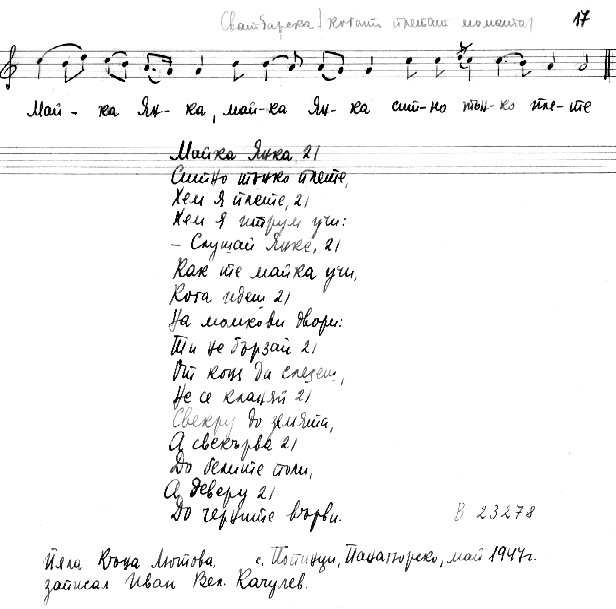 Сватбарска (когато плетат момата) 17
Май - ка Ян - ка, май-ка Ян - ка сит-но тън-ко пле-те
Майка Янка 2/
Ситно тънко плете,
Хем я плете, 2/
Хем я учи:
– Слушай Янке, 2/
Как те майка учи,
Кога идеш 2/
На момкови двори:
Ти не бързай 2/
От коня да слезеш,
Не се кланяй 2/
Свекру до земята,
А свекърва 2/
До белите поли,
А деверу 2/
До черните върви.
В 23278
Пяла Кона Лютова, с. Попинци, Панагюрско, май 1947г.
записал Иван Вел. Качулев.